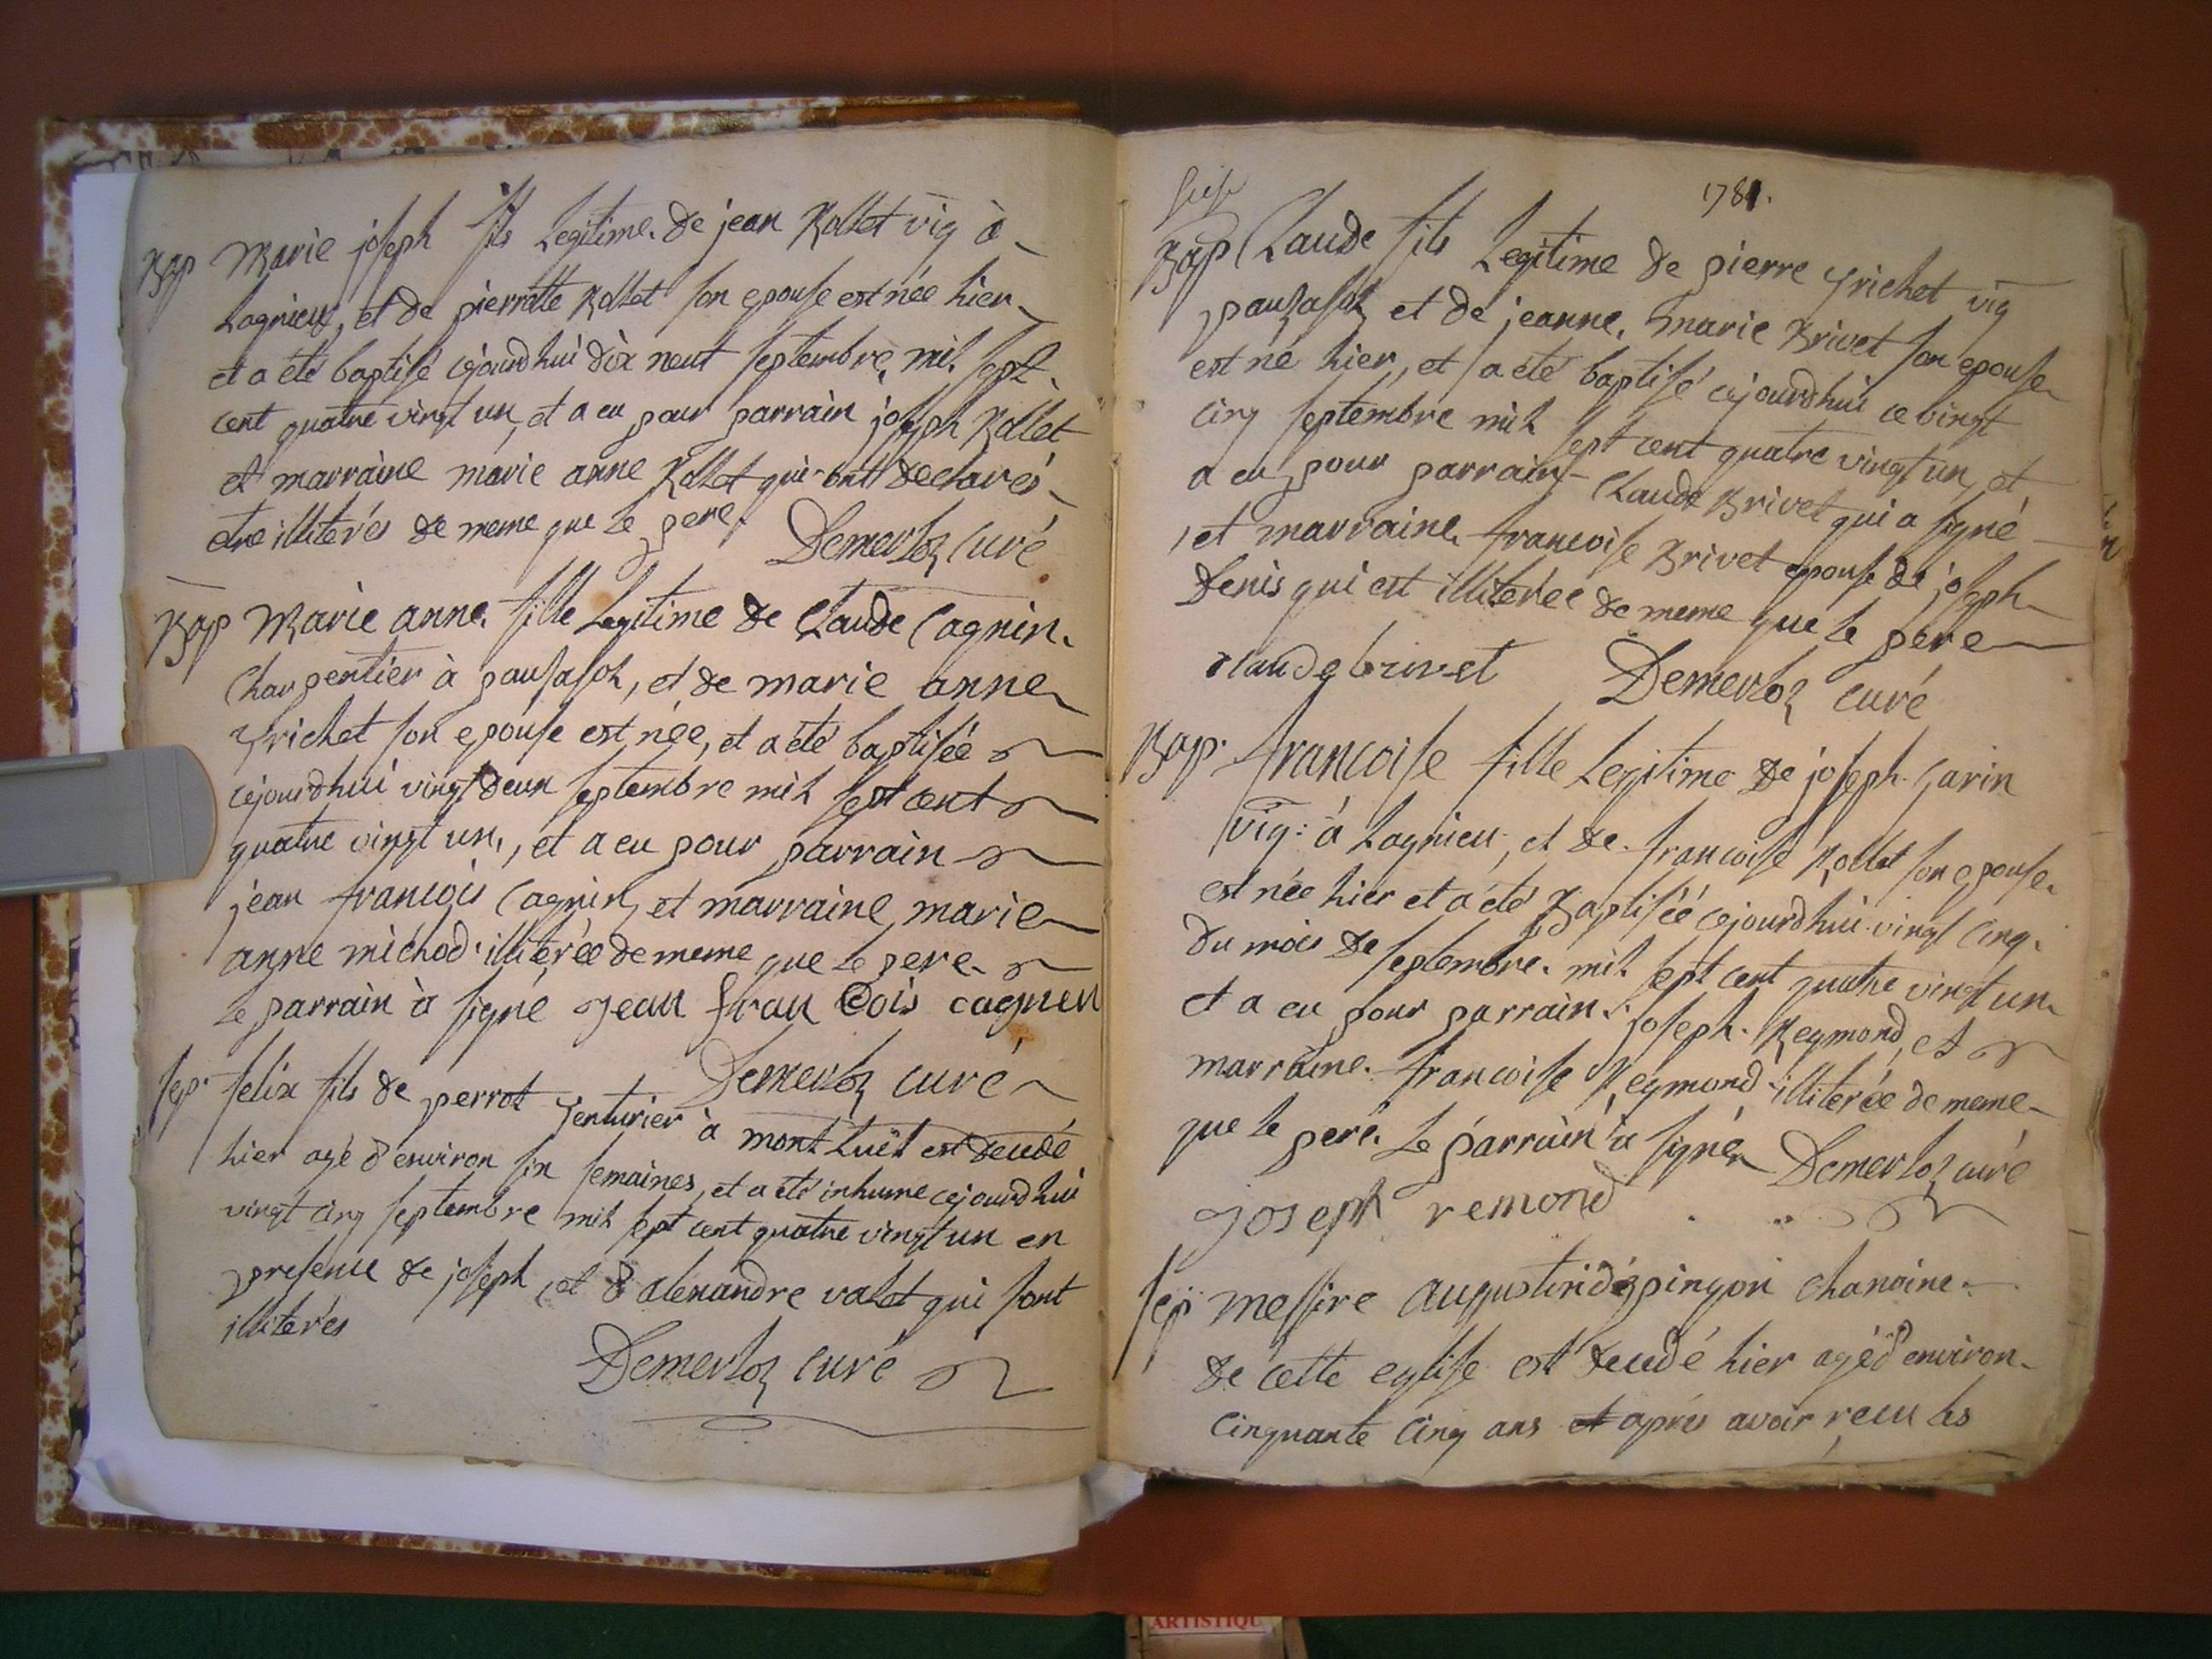 Bap Marie joseph fils Legitime de jean Rollet vig à
Lagnieu, et de pierrette Rollet son epouse est née hier
et a été baptisé cejourdhui dix neuf septembre mil sept
cent quatre vingt un, et a eu pour parrain joseph Rollet
et marraine marie anne Rollet qui ont declarés
etre illiterés de meme que le pere. Demerloz Curé
Bap Marie anne fille Legitime de Claude Cagnin
Charpentier à pausafol, et de marie anne
Trichet son epouse est née, et a été baptisée
cejourdhui vingt deux septembre mil sept cent
quatre vingt un, et a eu pour parrain
jean françois Cagnin, et marraine marie
anne michod illiterée de meme que le pere
le parrain à signé Jean fran Cois cagnen
Demerloz curé
sep. felix fils de perrot Jenturier à mont Luel est decedé
hier agé d'environ six semaines, et a été inhume cejourdhui
vingt cinq septembre mil sept cent quatre vingt un en
presence de joseph, et d'alexandre valet qui sont
illiterés
Demerloz curé
1781.
Bap Claude fils Legitime de pierre Trichet vig
pausafol et de jeanne marie Brivet son epouse
est né hier, et a été baptisé cejourdhui ce vingt
cinq septembre mil sept cent quatre vingt un, et
a eu pour parrain Claude Brivet qui a signé
et marraine francoise Brivet epouse de joseph
Denis qui est illiterée de meme que le pere
claude brivet Demerloz curé
Bap. francoise fille Legitime de joseph Garin
vig: à Lagnieu, et de francoise Rollet son epouse
est née hier et a été Baptisée cejourdhui vingt cinq
du mois de septembre mil sept cent quatre vingt un
et a eu pour parrain joseph Reymond, et
marraine francoise Reymond illiterée de meme
que le pere. Le parrain a signé Demerloz curé
Joseph remond
sep messire augustin d'épingon chanoine
de cette eglise est decedé hier agé d'environ
cinquante cinq ans et après avoir reçu les
ARTISTIQU